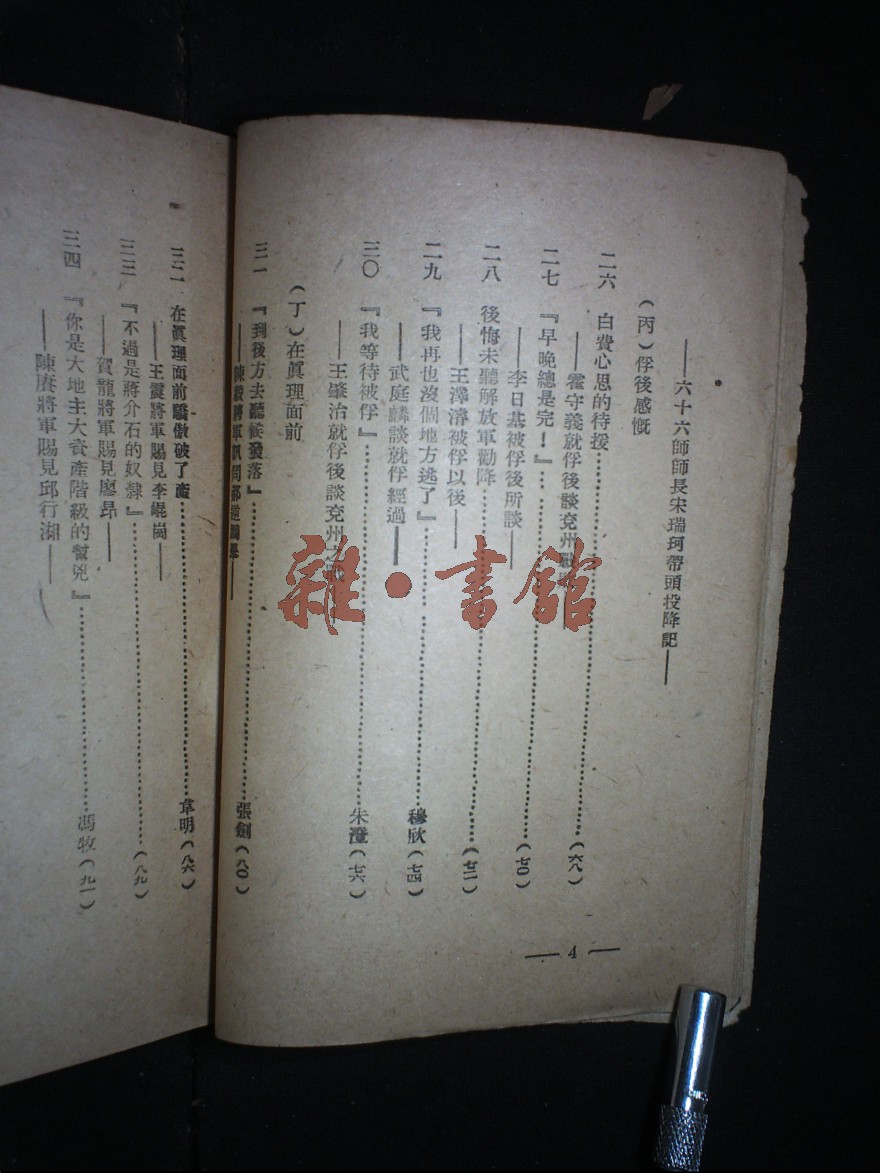 ——六十六師師長宋瑞珂帶頭投降記——
（丙）俘後感慨
二六　白費心思的待援……（六八）
——霍守義就俘後談兗州戰
二七　『早晚總是完！』……（七〇）
——李日基被俘後所談——
二八　後悔未聽解放軍勸降……（七二）
——王澤濬被俘以後——
二九　『我再也沒個地方逃了』……穆欣（七四）
——武庭麟談就俘經過——
三〇　『我等待被俘』……朱澄（七六）
——王肇治就俘後談兗州之戰
（丁）在眞理面前
三一　『到後方去聽候發落』……張劍（八〇）
——陳毅將軍訊問郝
三二　在眞理面前驕傲破了產……韋明（八六）
——王震將軍賜見李崐崗——
三三　『不過是蔣介石的奴隸』……（八九）
——賀龍將軍賜見廖昂——
三四　『你是大地主大資產階級的幫兇』……馮牧（九一）
——陳賡將軍賜見邱行湘——
— 4 —
雜·書館